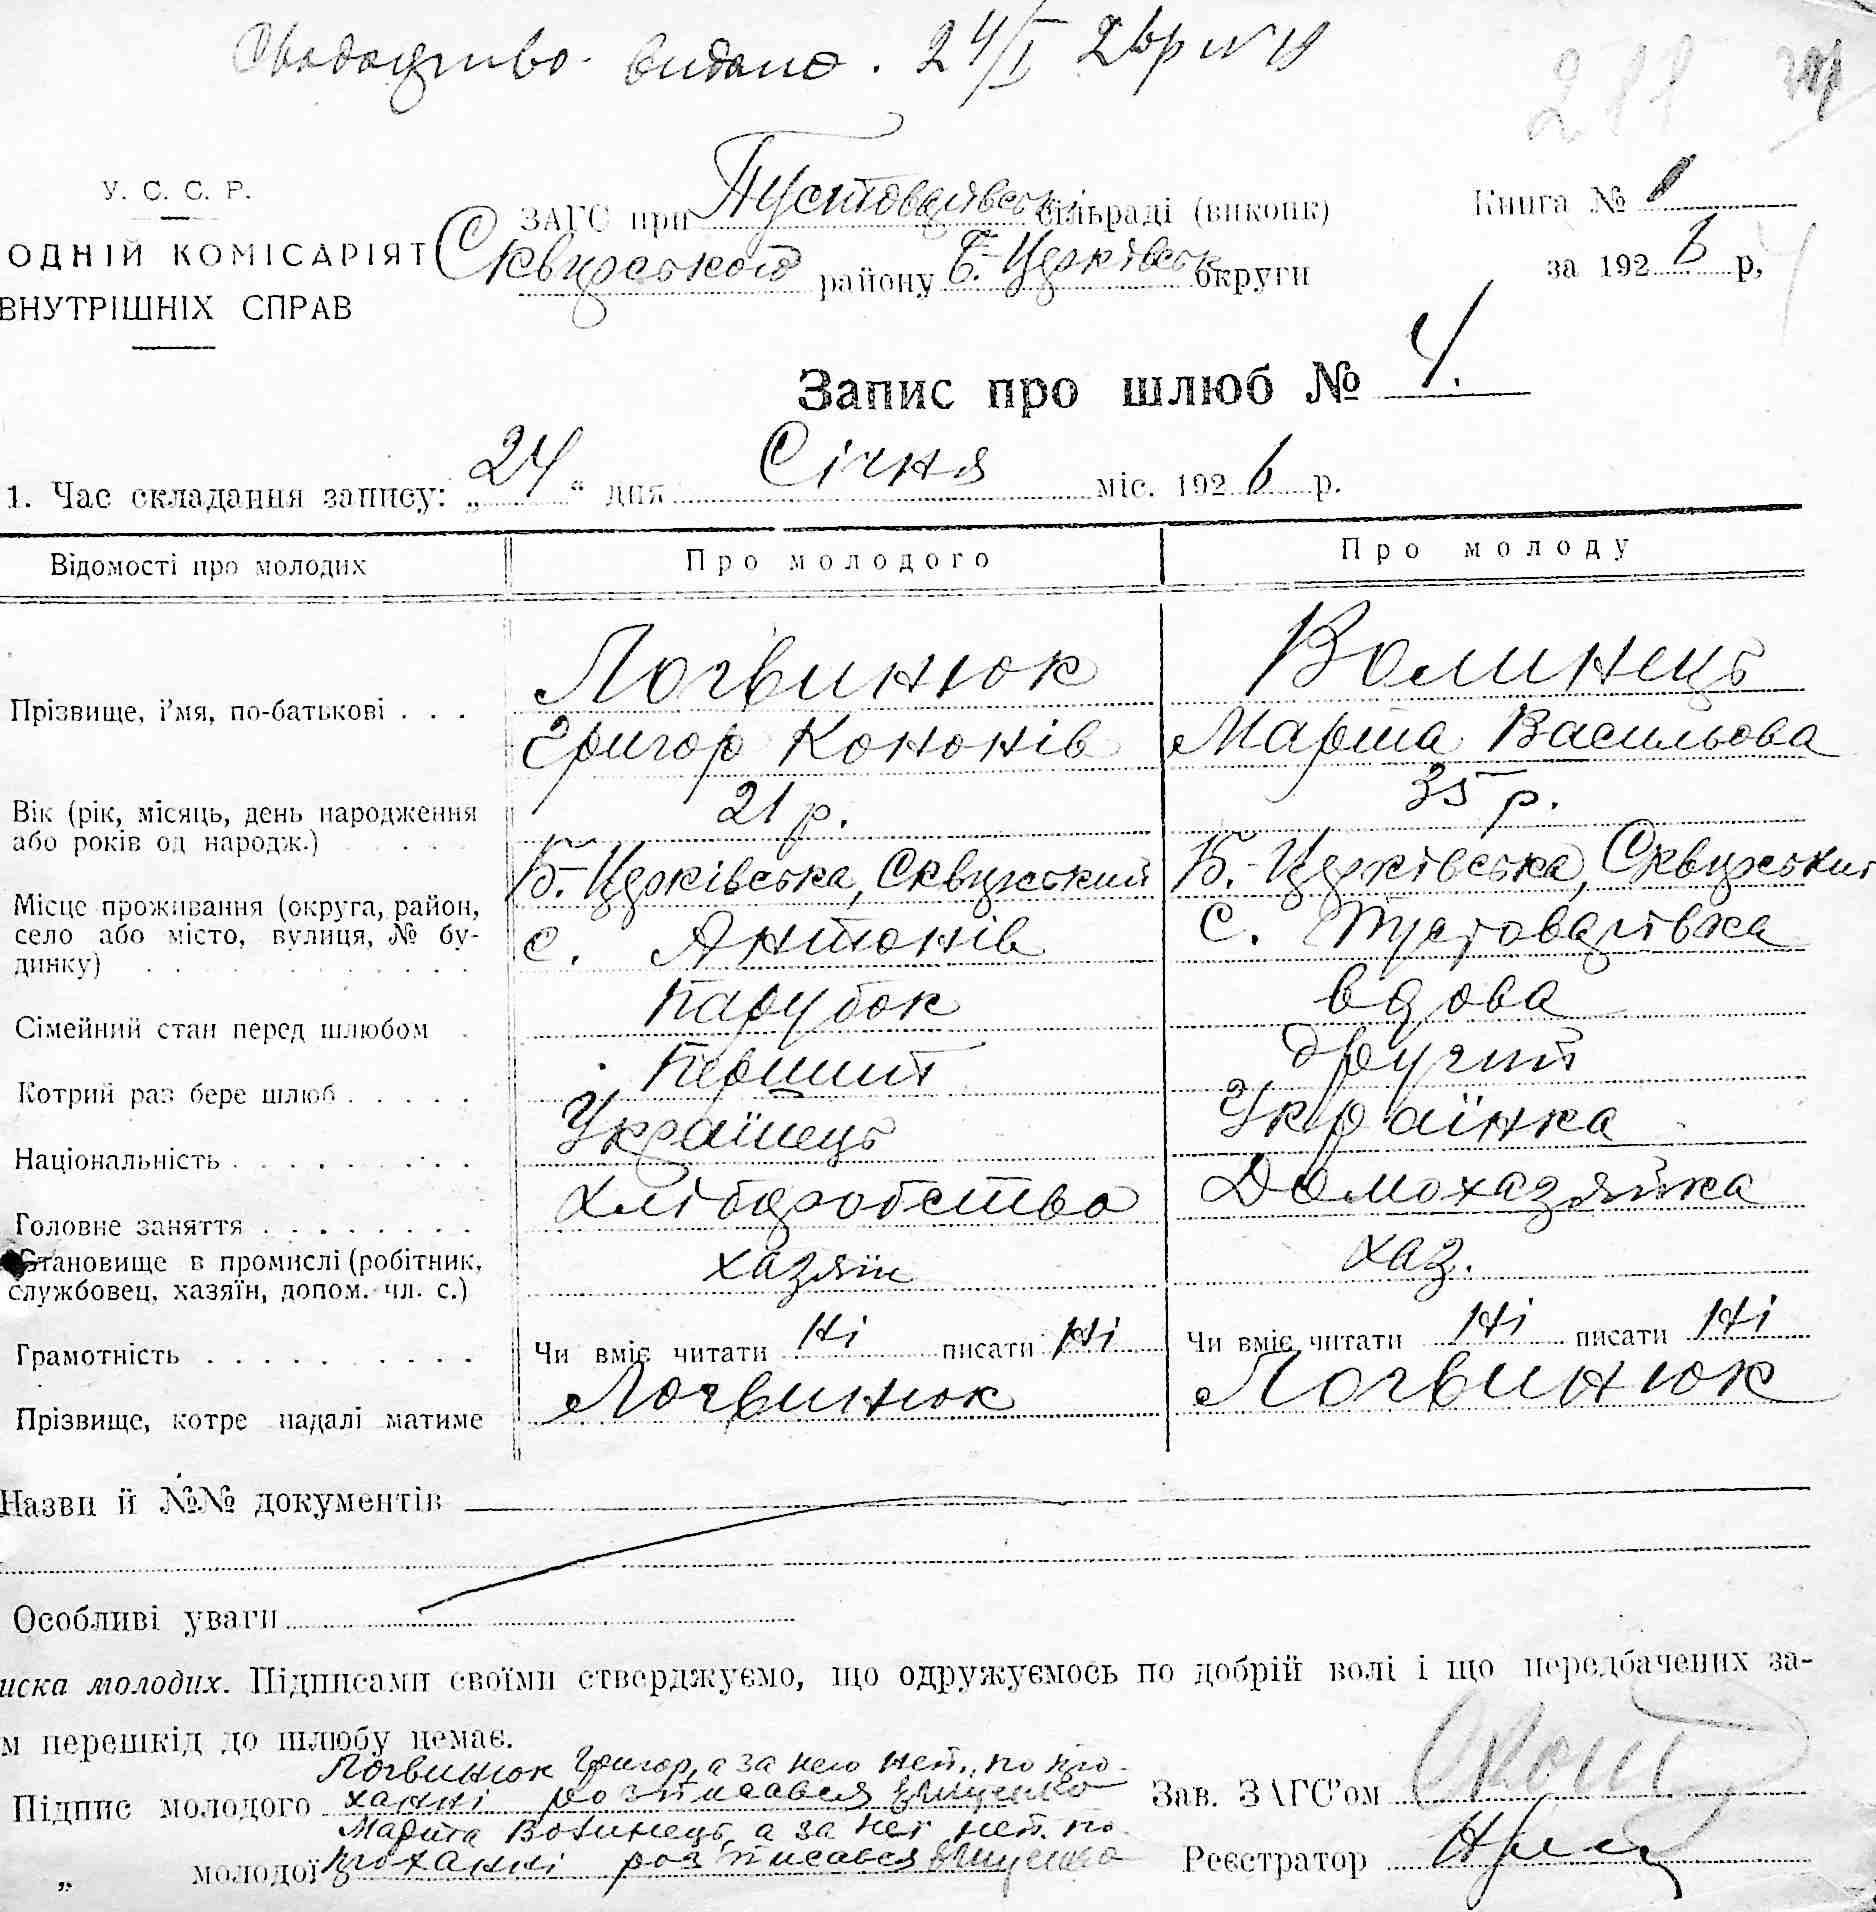 видано. 24/I 26р №
288
У. С. С. Р.
ОДНІЙ КОМІСАРІЯТ
ВНУТРІШНІХ СПРАВ
ЗАГС при Пустоварівськ сільраді (виконк)
Сквирського району Б.-Церківськ округи
Книга № 1
за 1926 р,
Запис про шлюб № 4.
1. Час складання запису: „24“ дня Січня міс. 1926 р.
Відомості про молодих
Про молодого
Про молоду
Прізвище, і'мя, по-батькові . . .
Логвинюк
Григор Кононів
Волинець
Марта Васильова
Вік (рік, місяць, день народження
або років од народж.) . . . . .
21 р.
35 р.
Місце проживання (округа, район,
село або місто, вулиця, № бу-
динку) . . . . . . . . . . . .
Б.-Церківська, Сквирський
с. Антонів
Б.-Церківська, Сквирський
с. Пустоварівка
Сімейний стан перед шлюбом .
Парубок
вдова
Котрий раз бере шлюб . . . . .
Перший
другий
Національність . . . . . . . . .
Українець
Українка
Головне заняття . . . . . . . .
хліборобство
Домохазяйка
Становище в промислі (робітник,
службовец, хазяїн, допом. чл. с.)
хазяїн
хаз.
Грамотність . . . . . . . . . .
Чи вміє читати ні писати ні
Чи вміє читати ні писати ні
Прізвище, котре надалі матиме
Логвинюк
Логвинюк
Назви й №№ документів
Особливі уваги
иска молодих. Підписами своїми стверджуємо, що одружуємось по добрій волі і що передбачених за-
м перешкід до шлюбу немає.
Логвинюк Григор, а за него неп., по про-
Підпис молодого ханні розписався
Марта Волинець, а за неї неп. по
„ молодої проханні розписався
Зав. ЗАГС'ом
Реєстратор